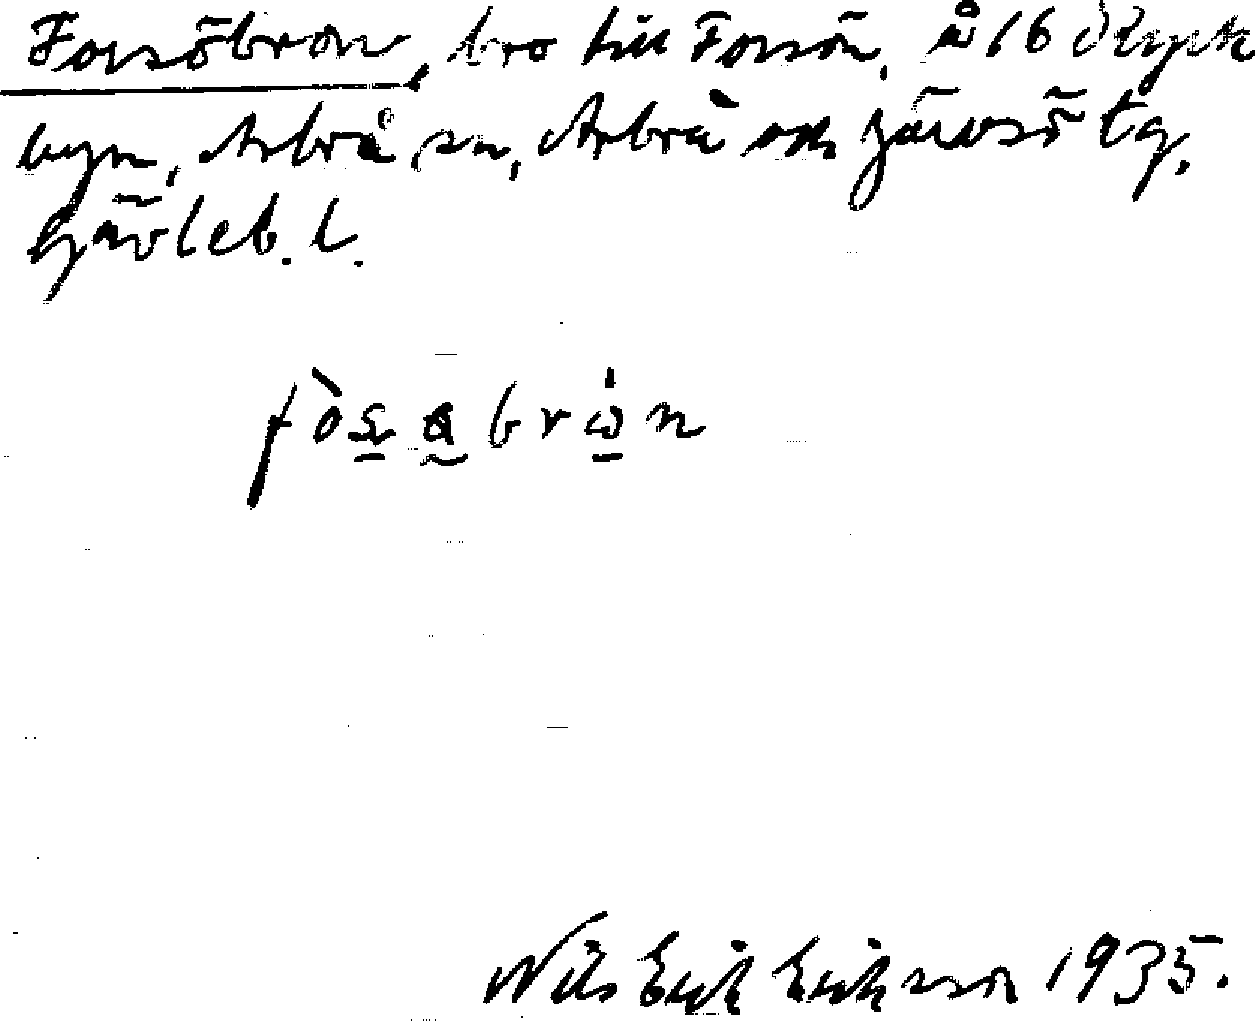 Forsöbron, bro till Forsön, å 16 Kyrk
byn, Arbrå sn, Arbrå och Järvsö tg,
Gävleb. l.
Nils Erik Eriksson 1935.